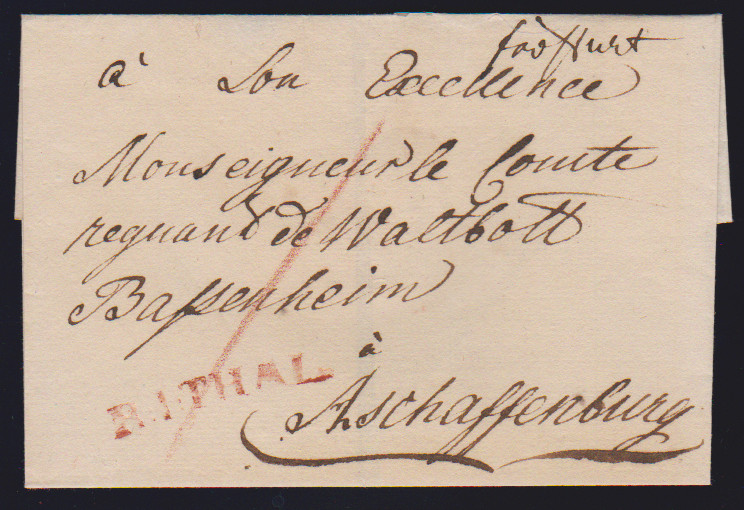 à Son Excellence
Monseigneur le Comte
regnand de Waltbott
Bassenheim
à
Aschaffenburg